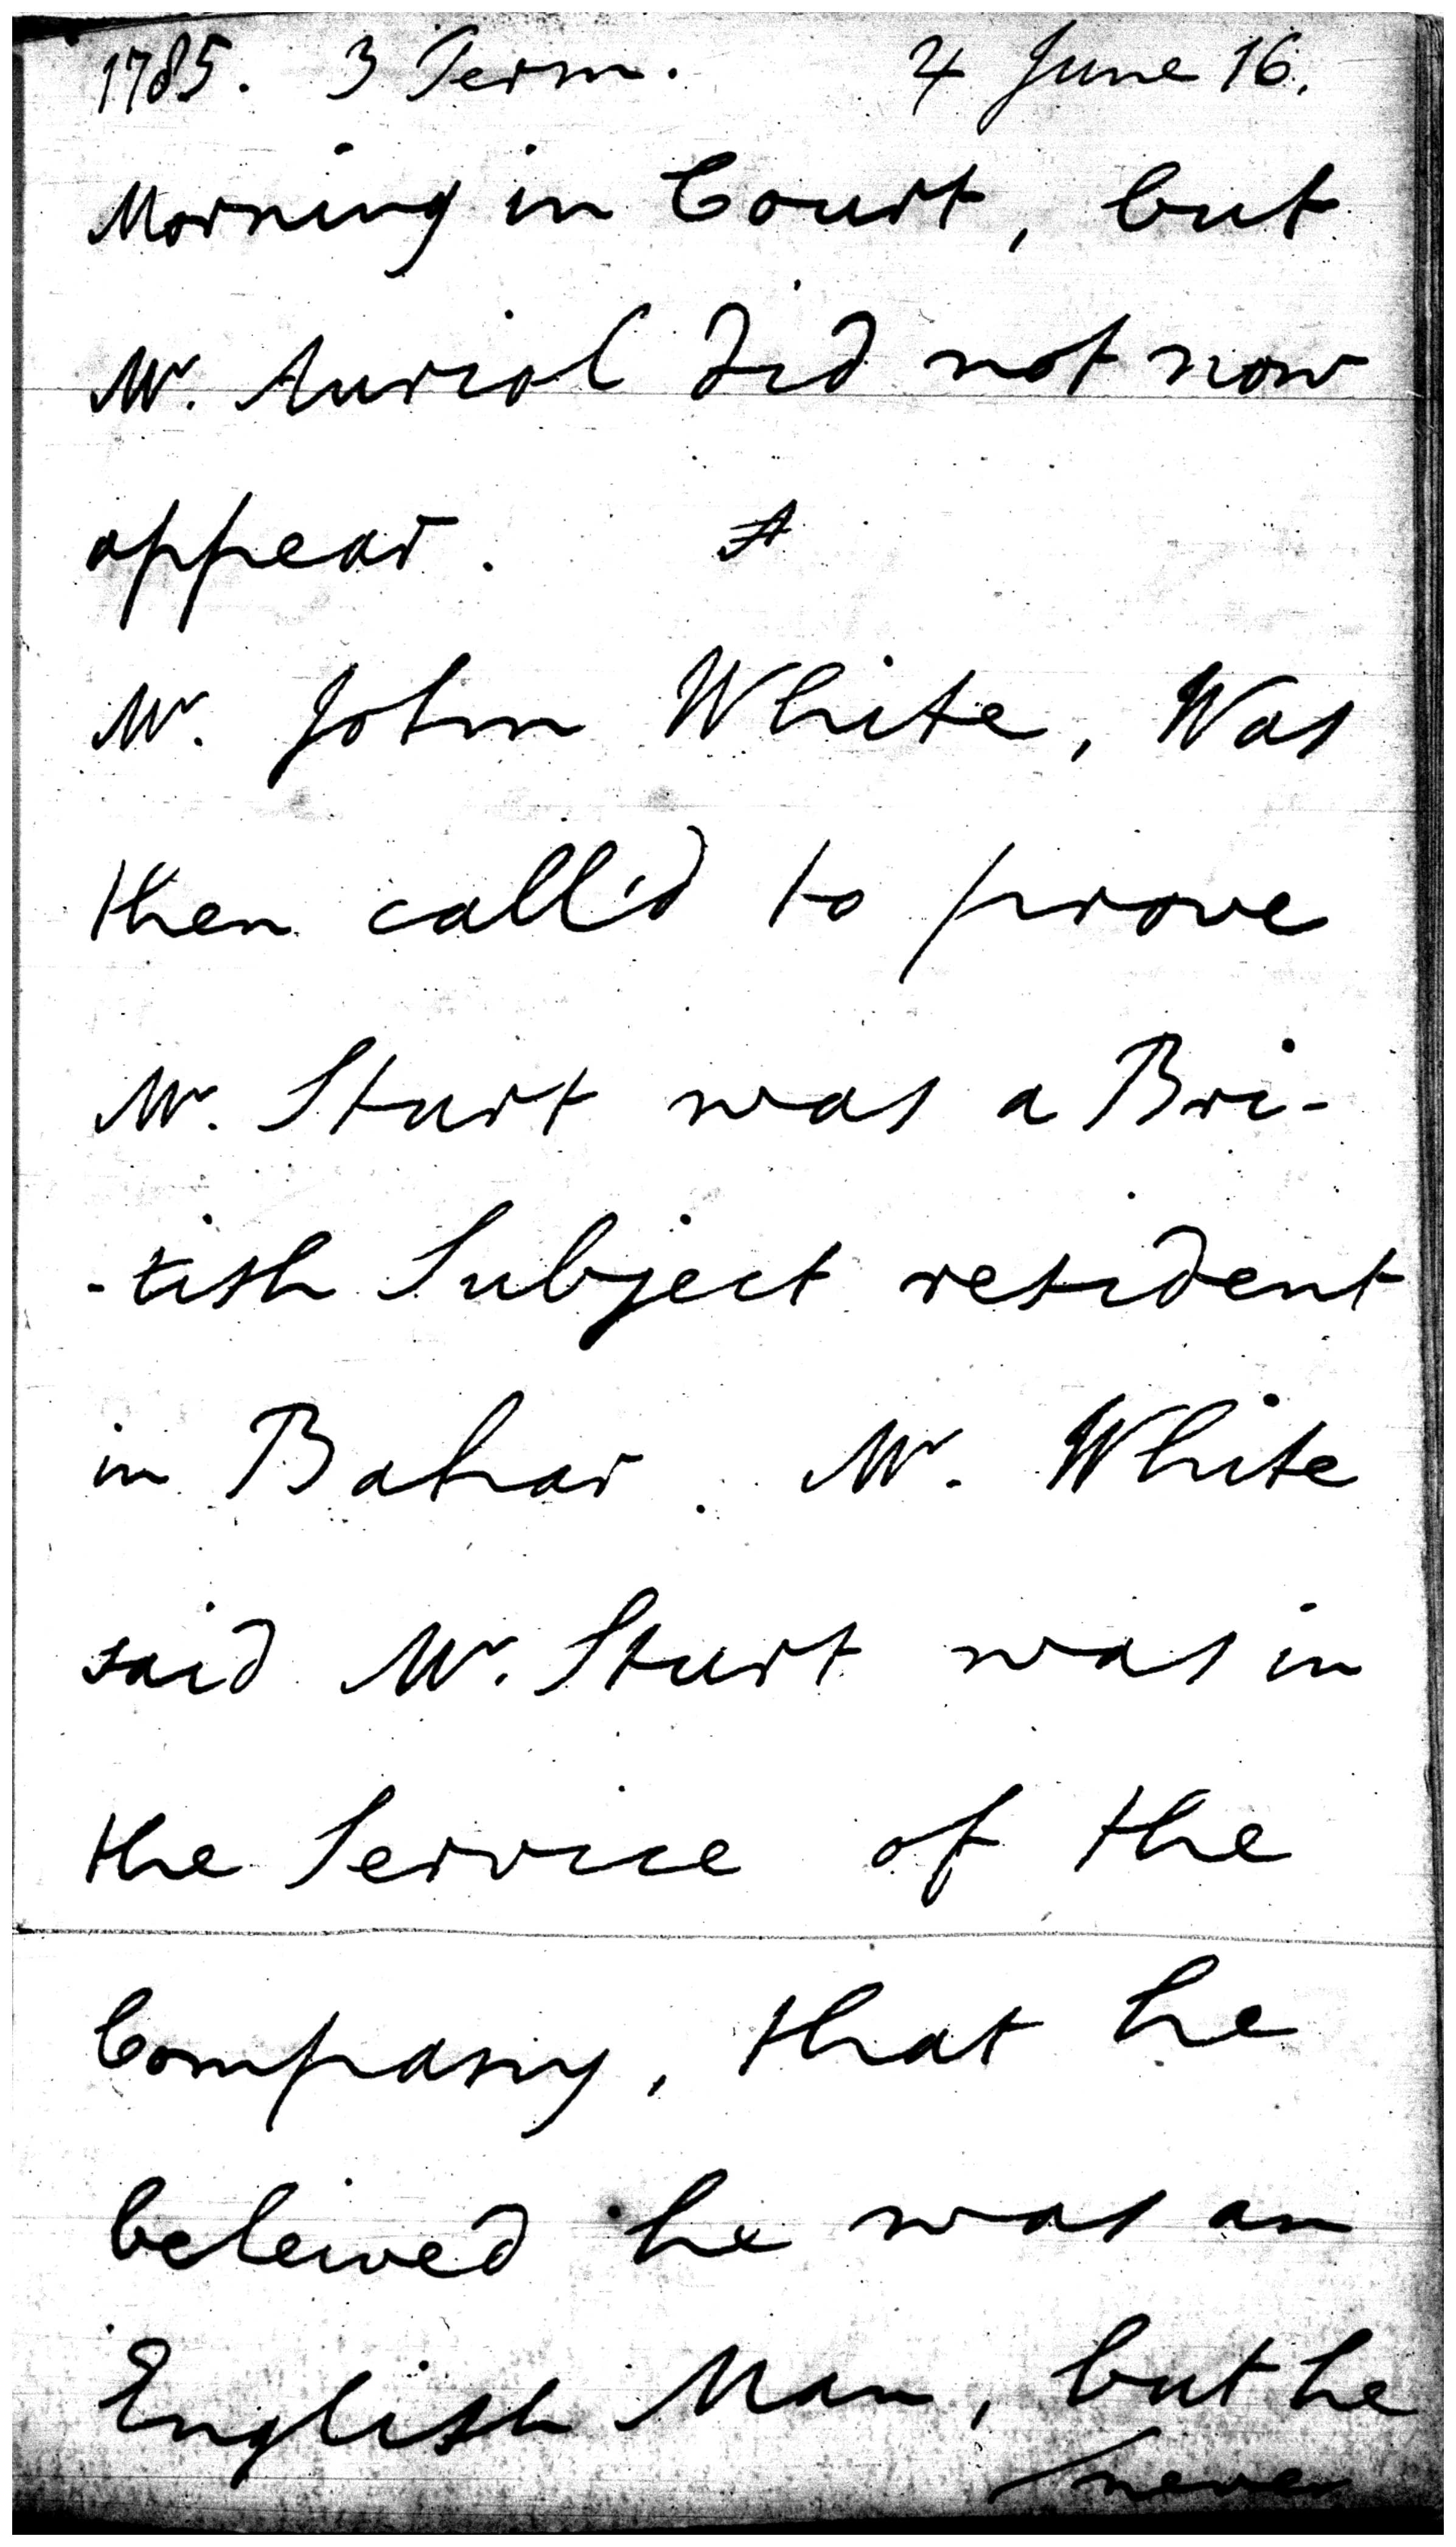 1785. 3 Term. ♃ June 16.
Morning in Court, but
Mr. Auriol did not now
appear.
Mr. John White, Was
then call'd to prove
Mr. Sturt was a Bri-
-tish Subject resident
in Bahar. Mr. White
said Mr. Sturt was in
the Service of the
Company, that he
beleived he was an
English Man, but he
never